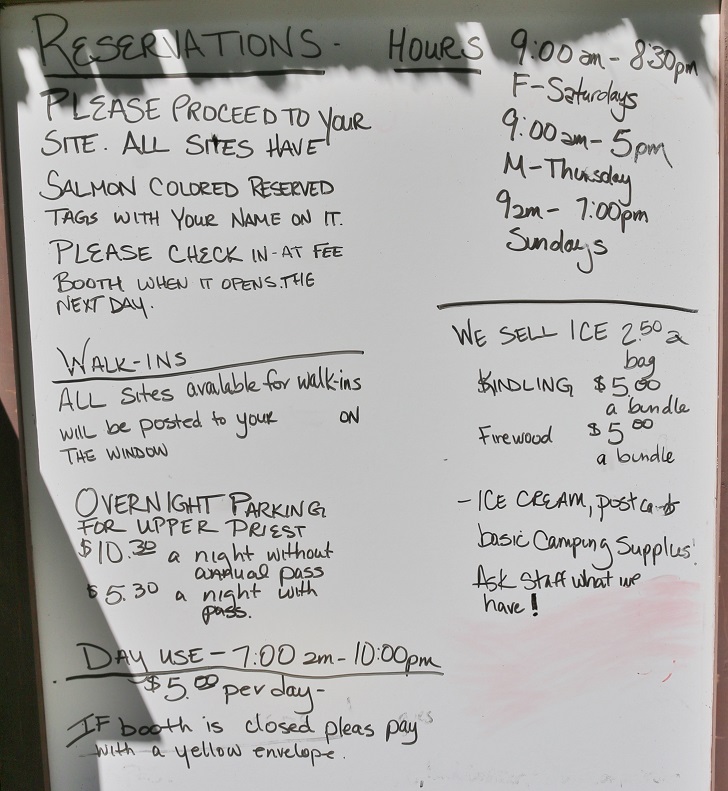 RESERVATIONS-
PLEASE PROCEED TO YOUR
SITE. ALL SITES HAVE
SALMON COLORED RESERVED
TAGS WITH YOUR NAME ON IT.
PLEASE CHECK IN-AT FEE
BOOTH WHEN IT OPENS.THE
NEXT DAY.
WALK-INS
ALL Sites available for walk-ins
will be posted to your ON
THE WINDOW
OVERNIGHT PARKING
FOR UPPER PRIEST
$10.30 a night without
annual pass
$5.30 a night with
pass.
DAY USE - 7:00 am - 10:00pm
$5.00 per day-
IF booth is closed pleas pay
with a yellow envelope.
HOURS 9:00 am - 8:30pm
F-Saturdays
9:00 am - 5pm
M-Thursday
9am - 7:00pm
Sundays
WE SELL ICE 2.50 a
bag
KINDLING $5.00
a bundle
Firewood $5.00
a bundle
- ICE CREAM, postcards
basic Camping Supplies!
Ask Staff what we
have!